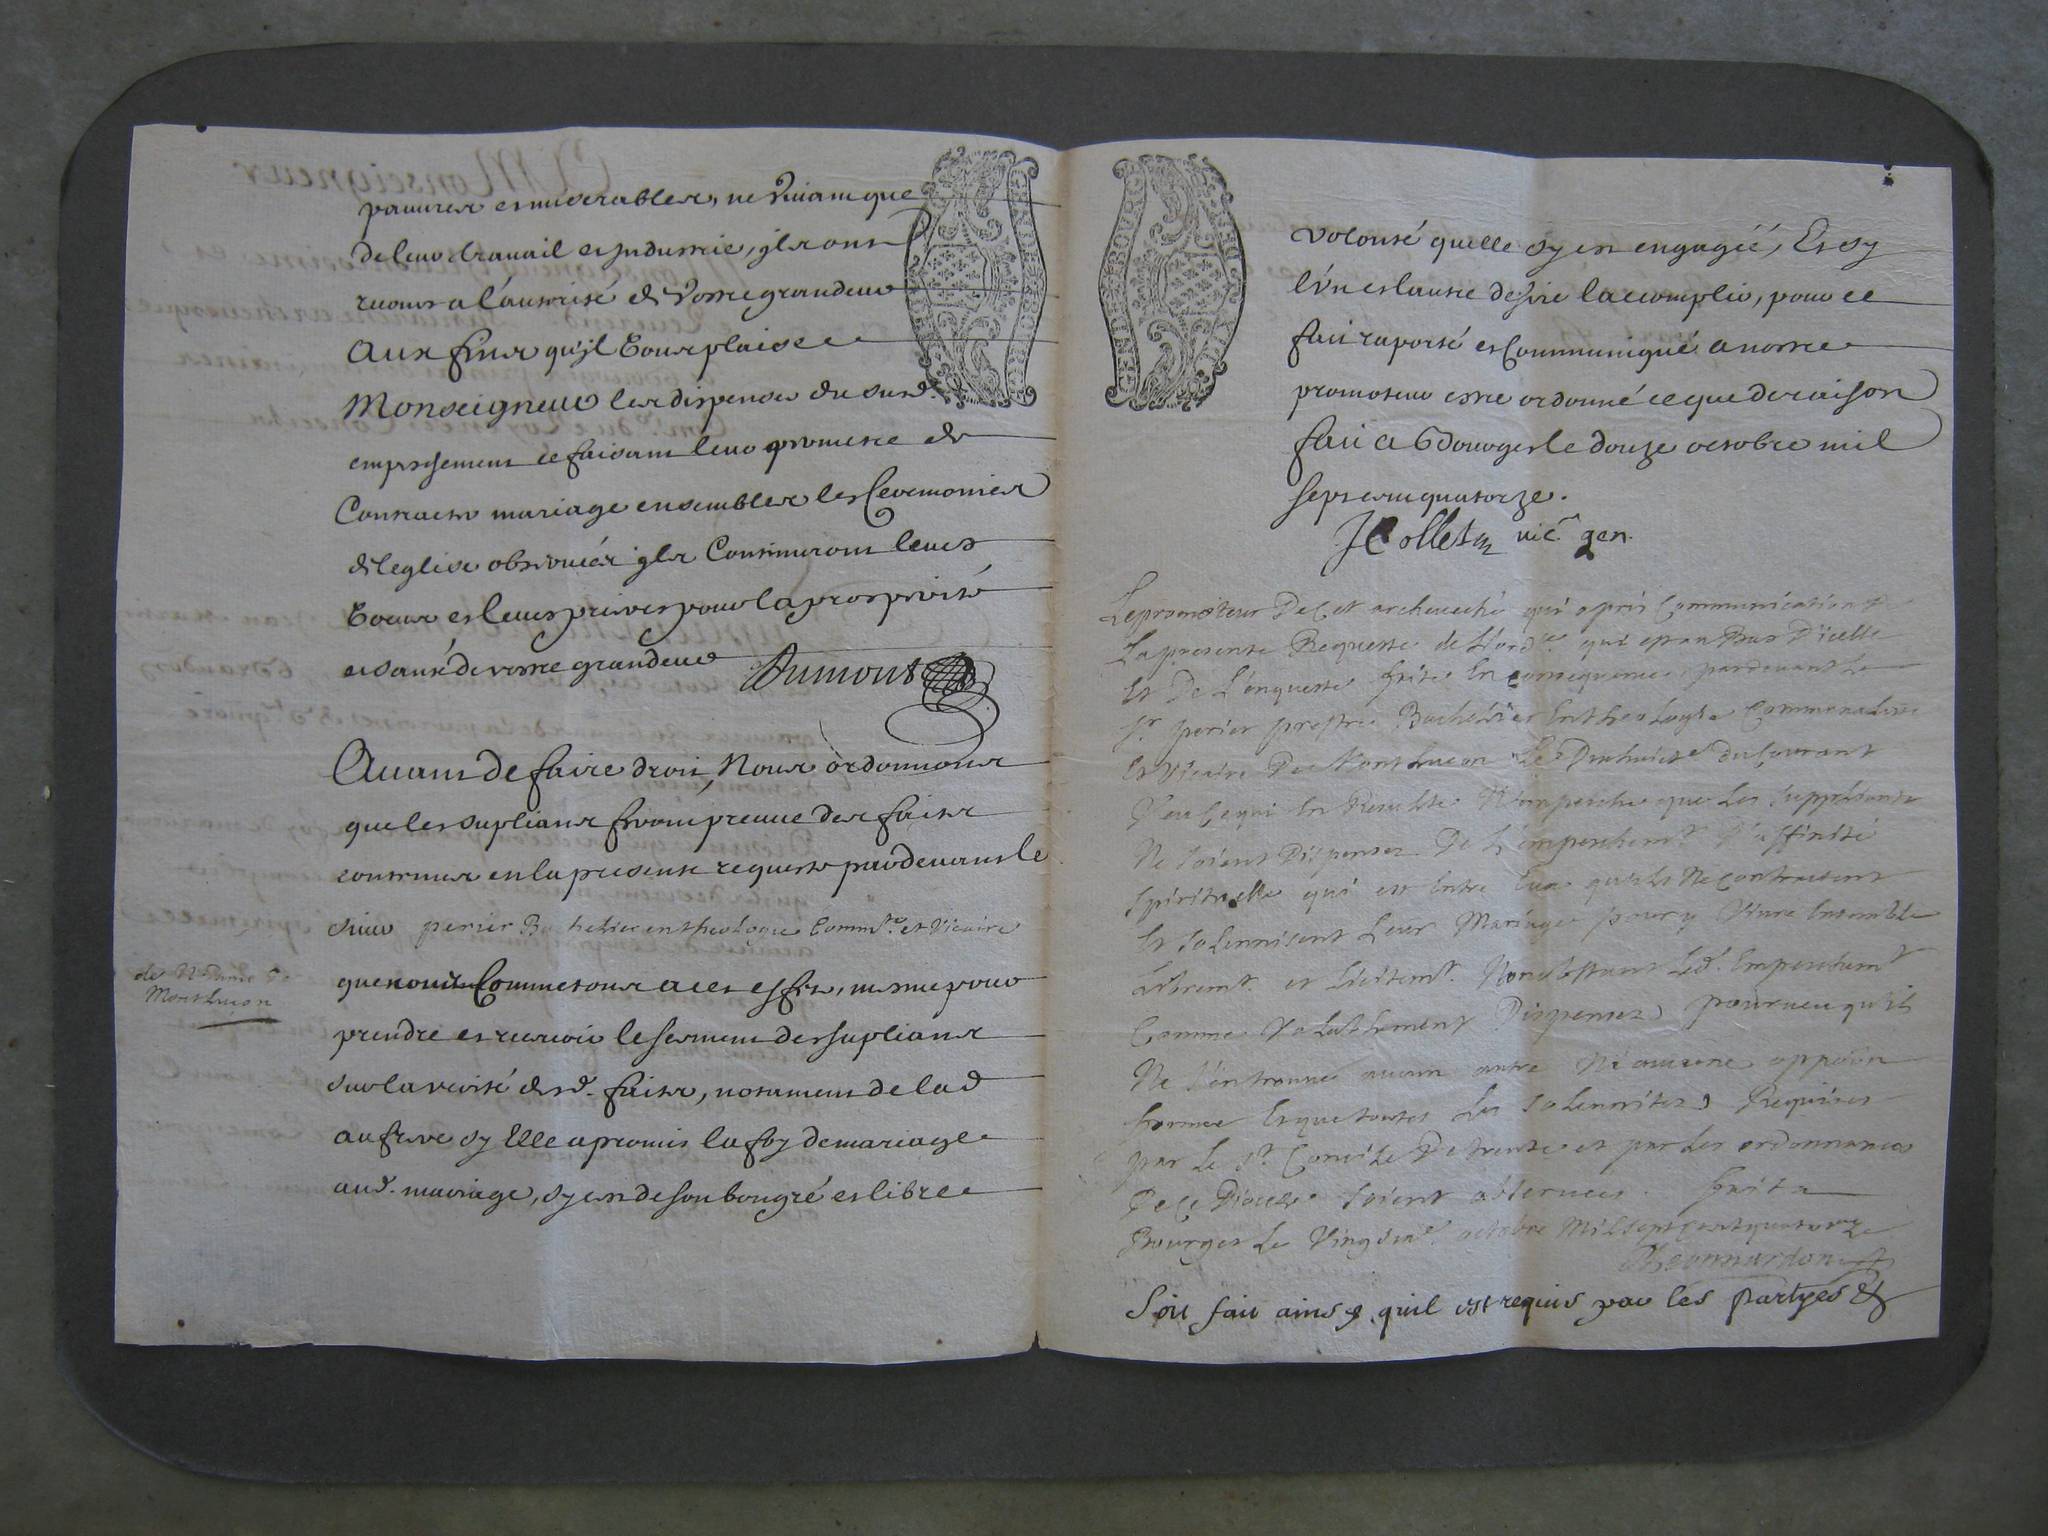 pauures et miserables, ne viuant que
de leur trauail et industrie, ils ont
recours a l'autorité de Vostre grandeur
Aux fins qu'il vous plaise
Monseigneur les dispenser du susd.
empeschement ce faisant leur permettre de
Contracter mariage ensembles les Ceremonies
de l'eglise obseruées ils Continuront leurs
voeux et leurs prieres pour la prosperité
et santé de vostre grandeur Aumont
Auant de faire droit, Nous ordonnons
que les suplians feront preuue des faits
contenus en la presente requeste pardeuant le
sieur perier Bachelier en theologie Comm.re et Vicaire
de N Dame de
Montluçon
que nous Commetons a cet effet, mesme pour
prendre et receuoir le serment des suplians
sur la verité desd. faits, notament de lad
aufreve sy Elle a promis la foy de mariage
aud. mariage, sy c'est de son bon gré et libre
volonté quelle sy est engagée, Et sy
l'vn et lautre desire lacomplir, pour ce
fait raporté et Communiqué a nostre
promoteur estre ordonné ce que de raison
fait a Bourges le douze octobre mil
sept cent quatorze.
J Colleton vic. gen.
Le promoteur De Cet archeueché qui a pris Communication de
La presente Requeste de L'ord.ce qui est au Bas D'icelle
Et De L'enqueste faite En consequence pardeuant Le
Sr. perier prestre Bachelier En theologie Commendataire
Et Vicaire De Montlucon Le Dixhuict.e du Courant
Veu Ce qui En Resulte N'empesche que Les supplians
Ne soient Dispensez De L'empeschemt. D'affinité
spirituelle qui est Entre Eux qu'ils Ne contractent
Et solennisent Leur Mariage pour y Viure Ensemble
Libremt. et Licitemt. Nonobstant Led. Empeschemt
Comme Valablement Dispensez pourueu qu'il
Ne s'en trouue aucun autre Ni aucune opposon
formée Et que toutes Les solennitez Requises
par Le St. Concile De trente et par Les ordonnances
De Ce Diocese soient obseruées. fait a
Bourges Le Vingt un.e octobre Mil sept Cent quatorze
Soit fait ainsy quil est requis par les partyes &